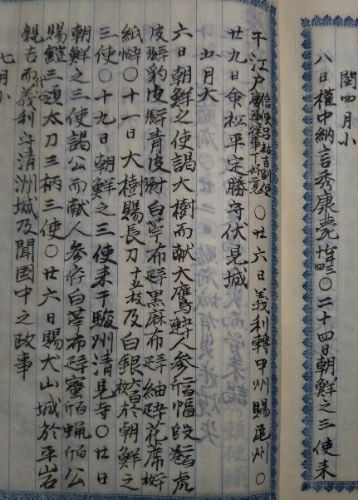 閏四月小
八日権中納言秀康薨○二十四日朝鮮之三使来
于江戸○廿六日義利轉甲州賜尾州○
廿九日命松平定勝守伏見城
五月大
六日朝鮮之使謁大樹而献大鷹人参段虎
皮豹皮青皮白苧布黒麻布紬花席好
紙○十一日大樹賜長刀十五枝及白銀於朝鮮之
三使○十九日朝鮮之三使来于駿州清見寺○廿日
朝鮮之三使謁公而献人参白苧布蜜蝋公
賜鎧三太刀三柄三使○廿六日賜犬山城於平岩
親吉而義利守清洲城及聞国中之政事
七月小